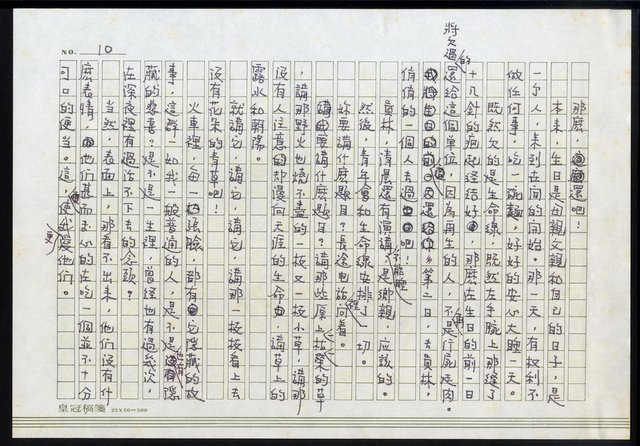 NO. 10
那麼，還吧！
本來，生日是母親父親和自己的日子，是
一個人，來到世間的開始。那一天，有權利不
做任何事，吃一碗麵，好好的安心大睡一天。
既然欠的是生命線，既然左手腕上那縫了
十幾針的疤起經結好，那麼在生日的前一日
將欠過的還給這個單位，因為再生的人，不是行屍走肉。
第二日，去員林，
悄悄的一個人去過生日吧！
員林，還有演講，是鄉親，不能睡應該的。
然後，青年會和生命線安排了一切。
妳要講什麼題目？長途電話裡問着。
講要講什麼題目？講那些原上枯榮的草
，講那野火也燒不盡的一枝又一枝小草，講那
沒有人注意的卻漫向天涯的生命，講草上的
露水和朝陽。
就講它，講它，講它，講那一枝枝看上去
沒有花朵的青草吧！
火車裡，每一個張臉，都有它隱藏的故
事，這群一如我一般普通的人，是不是也有隱
藏的憂喜？是不是一生裡，曾經也有過幾次，
在深夜裡有過活不下去的念頭？
當然，表面上，那看不出來，他們沒有什
麼表情，他們甚而專心的在吃一個並不十分
可口的便當。這，使我愛他們。
皇冠稿箋 25X20=500